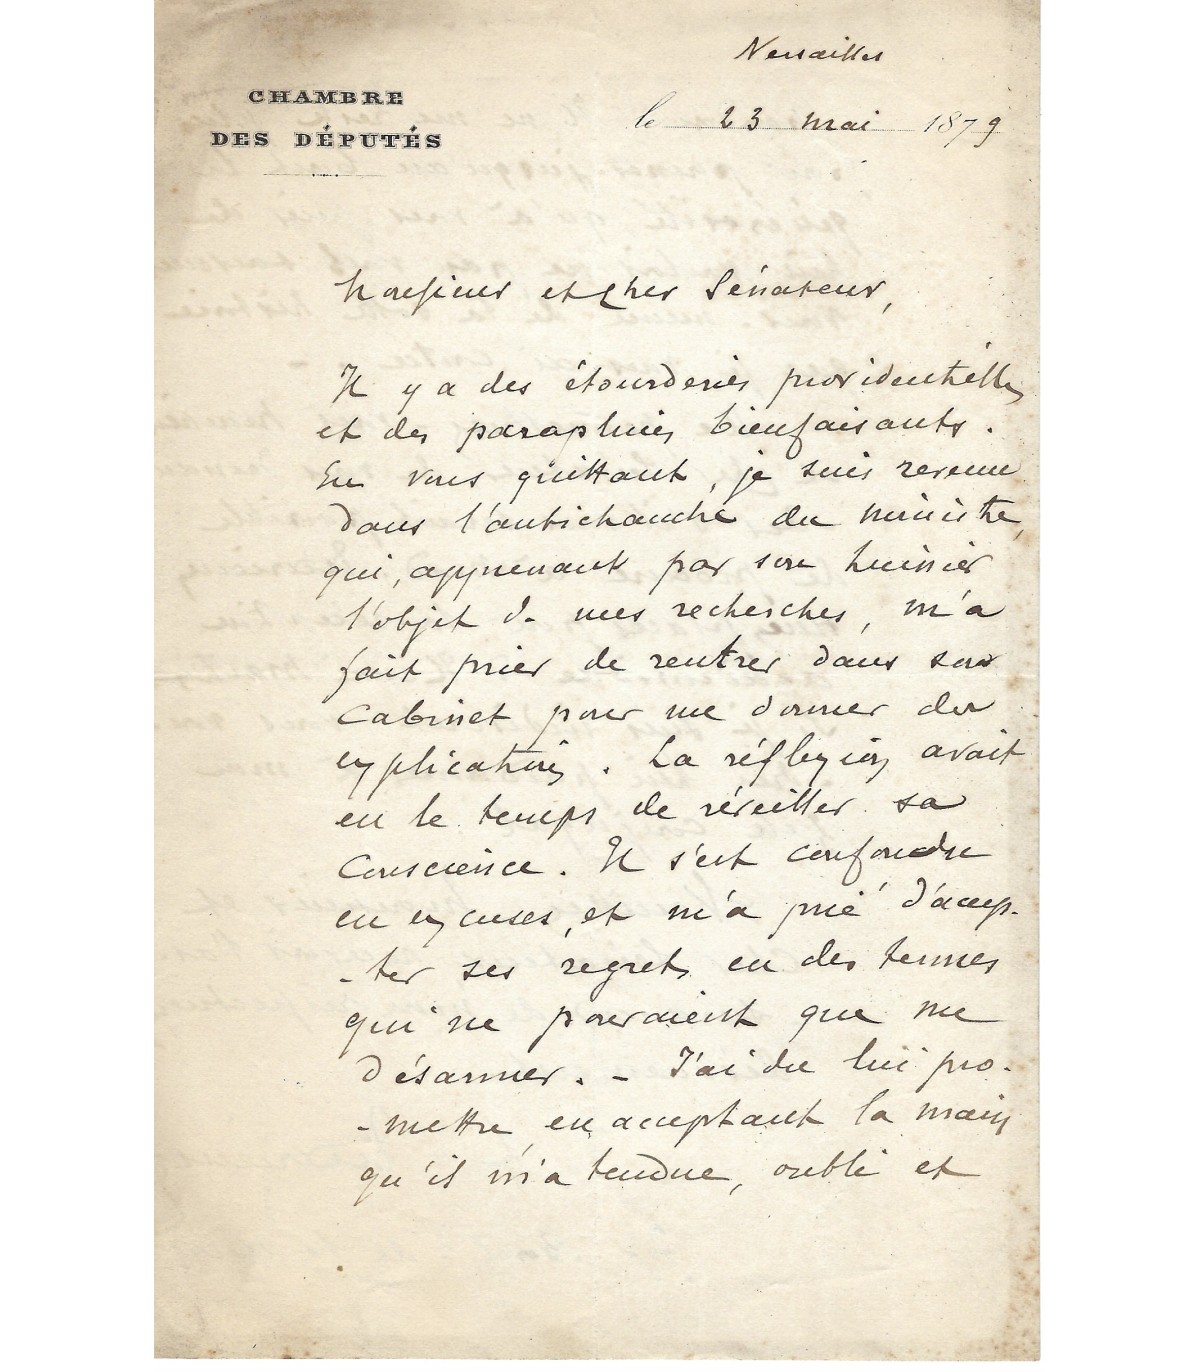 Versailles
CHAMBRE
DES DÉPUTÉS
le 23 mai 1879
Monsieur et cher Sénateur,
Il y a des étourderies providentielles
et des parapluies bienfaisants.
En vous quittant, je suis revenu
dans l'antichambre du ministre,
qui, apprenant par son huissier
l'objet de mes recherches, m'a
fait prier de rentrer dans son
cabinet pour me donner des
explications. La réflexion avait
eu le temps de réveiller sa
conscience. Il s'est confondu
en excuses, et m'a prié d'accep-
-ter ses regrets en des termes
qui ne pouvaient que me
désarmer. - J'ai du lui pro-
-mettre, en acceptant la main
qu'il m'a tendue, oubli et